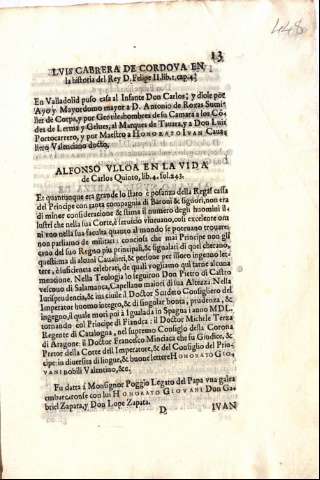 448
13
LVIS CABRERA DE CORDOVA EN
la historia del Rey D. Felipe II. lib. 1. cap. 4.
En Valladolid puso casa al Infante Don Carlos; y diole por
Ayo y Mayordomo mayor a D. Antonio de Rozas Sumi-
ller de Corps, y por Gentileshombres de su Camara a los Có-
des de Lerma y Gelues, al Marques de Tauara, y a Don Luis
Portocarrero, y por Maestro a HONORATO IVAN Caua-
llero Valenciano docto,
ALFONSO VLLOA EN LA VIDA
de Carlos Quinto, lib. 4. fol. 243.
Et quantunque era grande lo stato e posanza della Regia casa
del Principe con tanta compagnia di Baroni & signori, non era
di minor consideratione & stima il numero degli huomini il-
lustri che nella sua Corte, a seruitio viueuano, cosi excelente ogni
vno nella sua faculta quanto al mondo se poteuano trouare,
non parliamo de militari: conciosia che mai Principe non gli
hebbe del suo Regno piu principali, & signalati di quel che erano,
questi ma di alcuni Caualieri, & persone per illoro ingenio let-
tere, & sufficienza celebrati, de quali vogliamo qui farne alcuna
mentione. Nella Teologia lo seguiron Don Pietro di Castro
vescouo di Salamanca, Capellano maiori di sua Altezza. Nella
Iurisprudencia, & ius ciuile il Doctor Sindeto Consigliero del
Imperatore huomo integro, & di singolar bonta, prudenza, &
ingegno, il quale mori poi à Igualada in Spagna i anno MDL.
tornando col Principe di Fiandra: il Doctor Michele Terza
Regente di Catalogna, nel supremo Consiglio della Corona
di Aragone: il Doctor Francesco Minciaca che fu Giudice, &
Pretor della Corte dell Imperatore, & del Consiglio del Prin-
cipe: in diuersita di lingue, & buone lettere HONORATO GIO-
VANI nobili Valentino, &c.
Fu datta à Monsignor Poggio Legato del Papa vna galea
embarcaronse con lui HONORATO GIOVANI Don Ga-
briel Zapata, y Don Lope Zapata.
D
IVAN